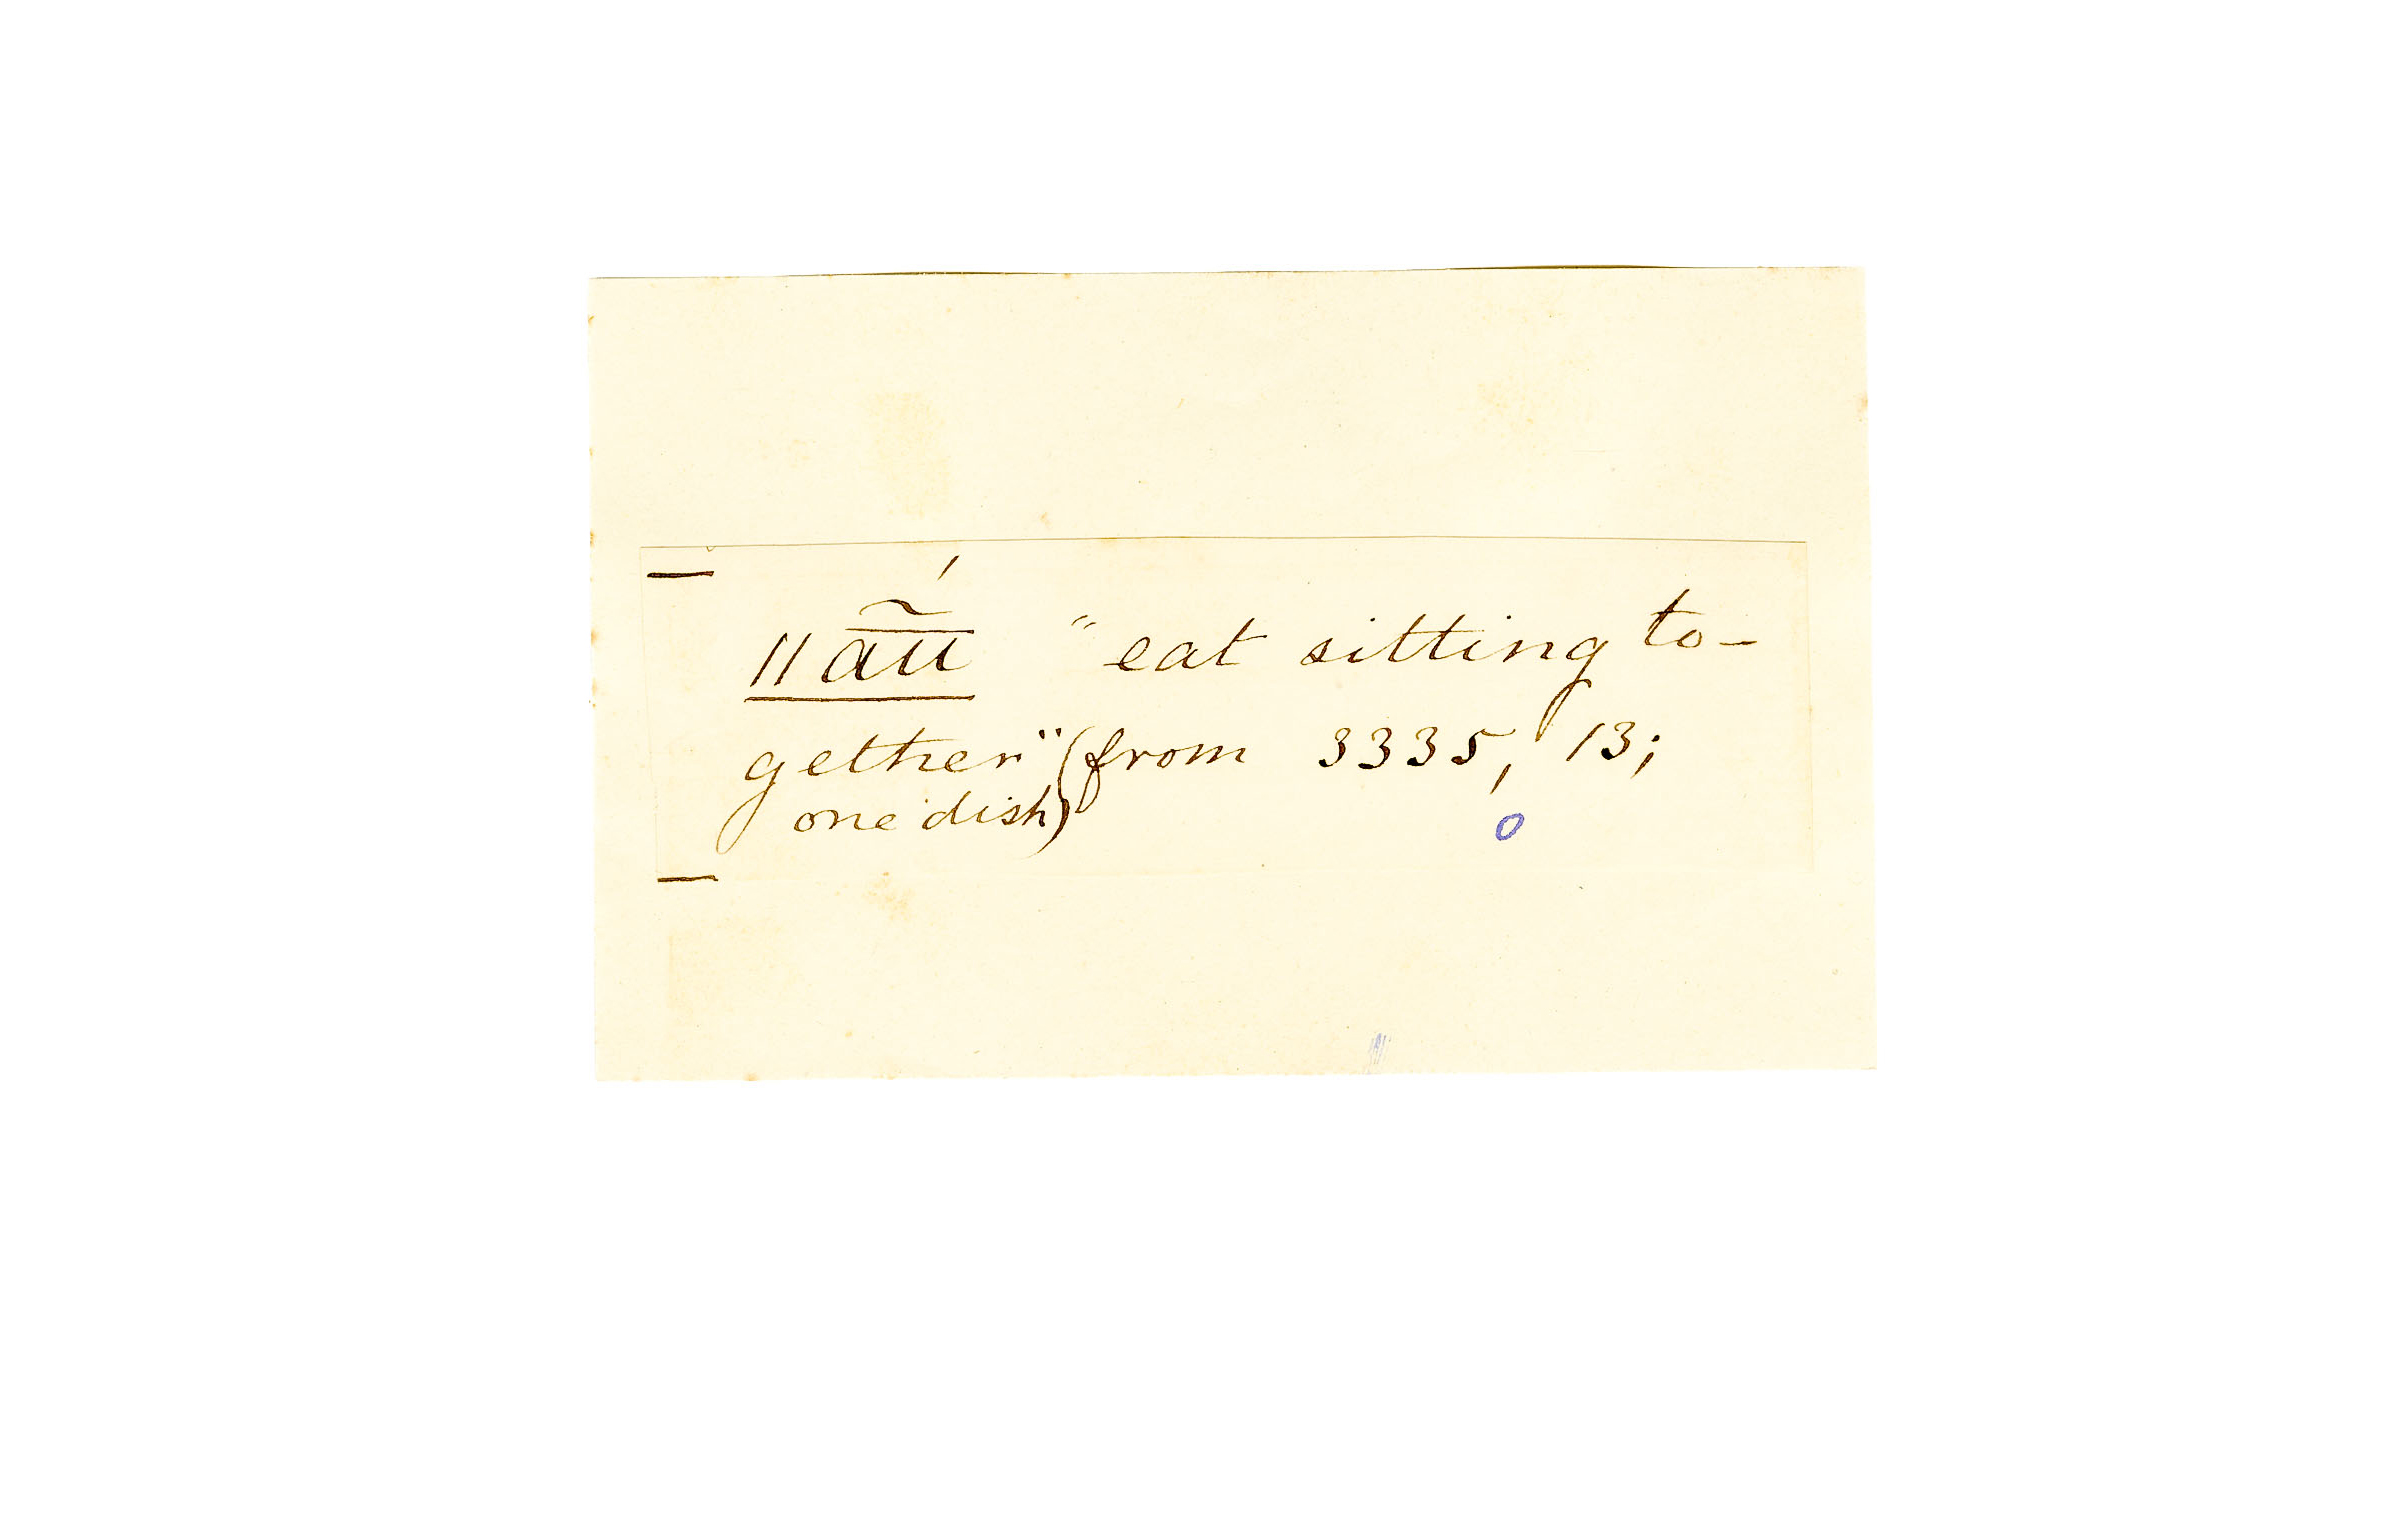 ǁa͠ú "eat sitting to-
gether" (from 3335, 13;
one dish)
o